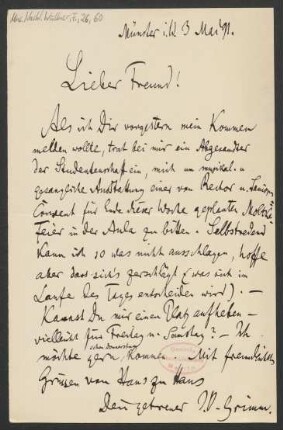 Münster i. W. 3 Mai 91.
Lieber Freund!
Als ich Dir vorgestern mein Kommen
melden wollte, trat bei mir ein Abgesandter
der Studentenschaft ein, mich um musikal. u.
gesangliche Ausstattung einer von Rector u.
Convent für Ende dieser Woche geplanten Moltke
Feier in der Aula zu bitten. Selbstredend
kann ich so was nicht ausschlagen, hoffe
aber dass sich's zerschlägt (was sich im
Laufe des Tages entscheiden wird). –
Kannst Du mir einen Platz aufheben –
vielleicht für Freitag u. Samstag? – Ich
möchte gern schon Donnerstag kommen. Mit freundlichen
Grüssen von Haus zu Haus
Dein getreuer J. O. Grimm.